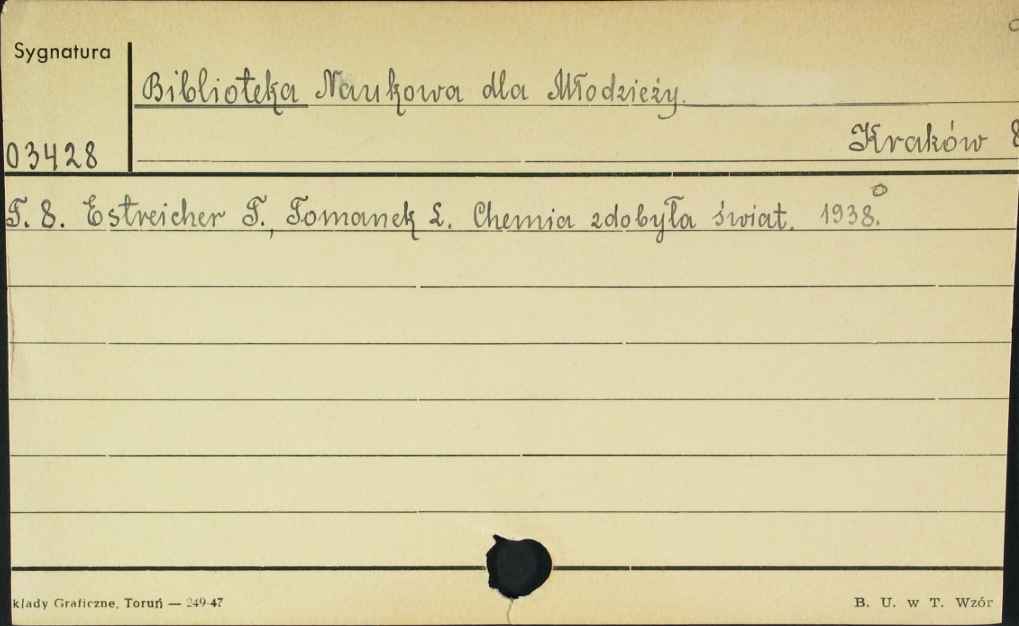 Sygnatura
Biblioteka Naukowa dla Młodzieży.
03428
Kraków 8
T. 8. Estreicher T., Tomanek L. Chemia zdobyła świat. 1938.
klady Graficzne, Toruń — 249-47
B. U. w T. Wzór